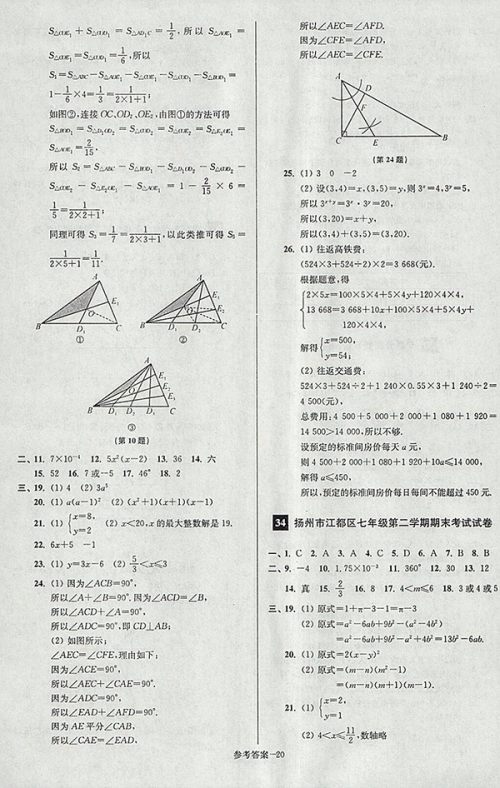 S△ODE₁ + S△ODE₁ = S△AD₁C = 1/2, 所以 S△AOE₁ =
S△COE₁ = S△COD₁ = 1/6, 所以
1 − 1/6 × 4 = 1/3 = 1/(2×1+1);
如图②,连接 OC,OD₂,OE₂,由图①的方法可得
S△AOE₁ = 2/15,
S△COE₂ − S△E₂OE₁ − S△AOE₁ = 1 − 2/15 × 6 =
1/5 = 1/(2×2+1);
同理可得 S₃ = 1/7 = 1/(2×3+1), 以此类推可得 S₅ =
1/(2×5+1) = 1/11.
A
E₁
O
B D₁ C
①
A
E₁
E₂
O
B D₁ D₂ C
②
A
E₁
E₂
E₃
O
B D₁ D₂ D₃ C
③
(第10题)
二、11. 7×10⁻⁴ 12. 5x²(x−2) 13. 36 14. 六
15. 52 16. 7或−5 17. 46° 18. 2
三、19. (1) 4 (2) 3a⁵
20. (1) a(a−1)² (2) (x²+1)(x+1)(x−1)
21. (1) {x=8, y=2 (2) x<20,x的最大整数解是19.
22. 6x+5 −1
23. (1) y=3x−6 (2) 5/3<x≤3
24. (1) 因为∠ACB=90°,
所以∠A+∠B=90°. 因为∠ACD=∠B,
所以∠ACD+∠A=90°,
所以∠ADC=90°,即CD⊥AB;
(2) 如图所示;
∠AEC=∠CFE,理由如下:
因为∠ACE=90°,
所以∠AEC+∠CAE=90°.
因为∠ADC=90°,
所以∠EAD+∠AFD=90°.
因为AE平分∠CAB,
所以∠CAE=∠EAD,
所以∠AEC=∠AFD.
因为∠CFE=∠AFD,
所以∠AEC=∠CFE.
A
D
F
C E B
(第24题)
25. (1) 3 0 −2
(2) 设(3,4)=x,(3,5)=y,则3ˣ=4,3ʸ=5,
所以3ˣ⁺ʸ=3ˣ·3ʸ=20,
所以(3,20)=x+y,
所以(3,4)+(3,5)=(3,20).
26. (1) 往返高铁费:
(524×3+524÷2)×2=3 668(元).
根据题意,得
{2×5x=100×5×4+5×4y+120×4×4,
13 668=3 668+10x+100×5×4+5×4y+
120×4×4,
解得{x=500, y=54;
(2) 往返交通费:
524×3+524÷2+1 240×0.55×3+1 240÷2=
4 500(元),
总费用: 4 500+5 000+2 000+1 080+1 920=
14 500>14 000,所以不够.
设预定的标准间房价每天a元,
则4 500+2 000+1 080+1 920+10a≤14 000,
解得a≤450,
所以,预定的标准间房价每日每间不能超过450元.
34 扬州市江都区七年级第二学期期末考试试卷
一、1. C 2. A 3. A 4. C 5. D 6. A 7. B 8. B
二、9. −4 10. 1.75×10⁻³ 11. 360° 12. 30 13. 12
14. 真 15. 2/3 16. 8 17. 4<m≤6 18. 3或4或5
三、19. (1) 原式=1+π−3−1=π−3
(2) 原式=a²−6ab+9b²−(a²−4b²)
=a²−6ab+9b²−a²+4b²=13b²−6ab.
20. (1) 原式=2(x−y)²
(2) 原式=(m−n)(m²−1)
=(m−n)(m+1)(m−1).
21. (1) {x=2, y=1
(2) 4<x≤11/2,数轴略
参考答案−20